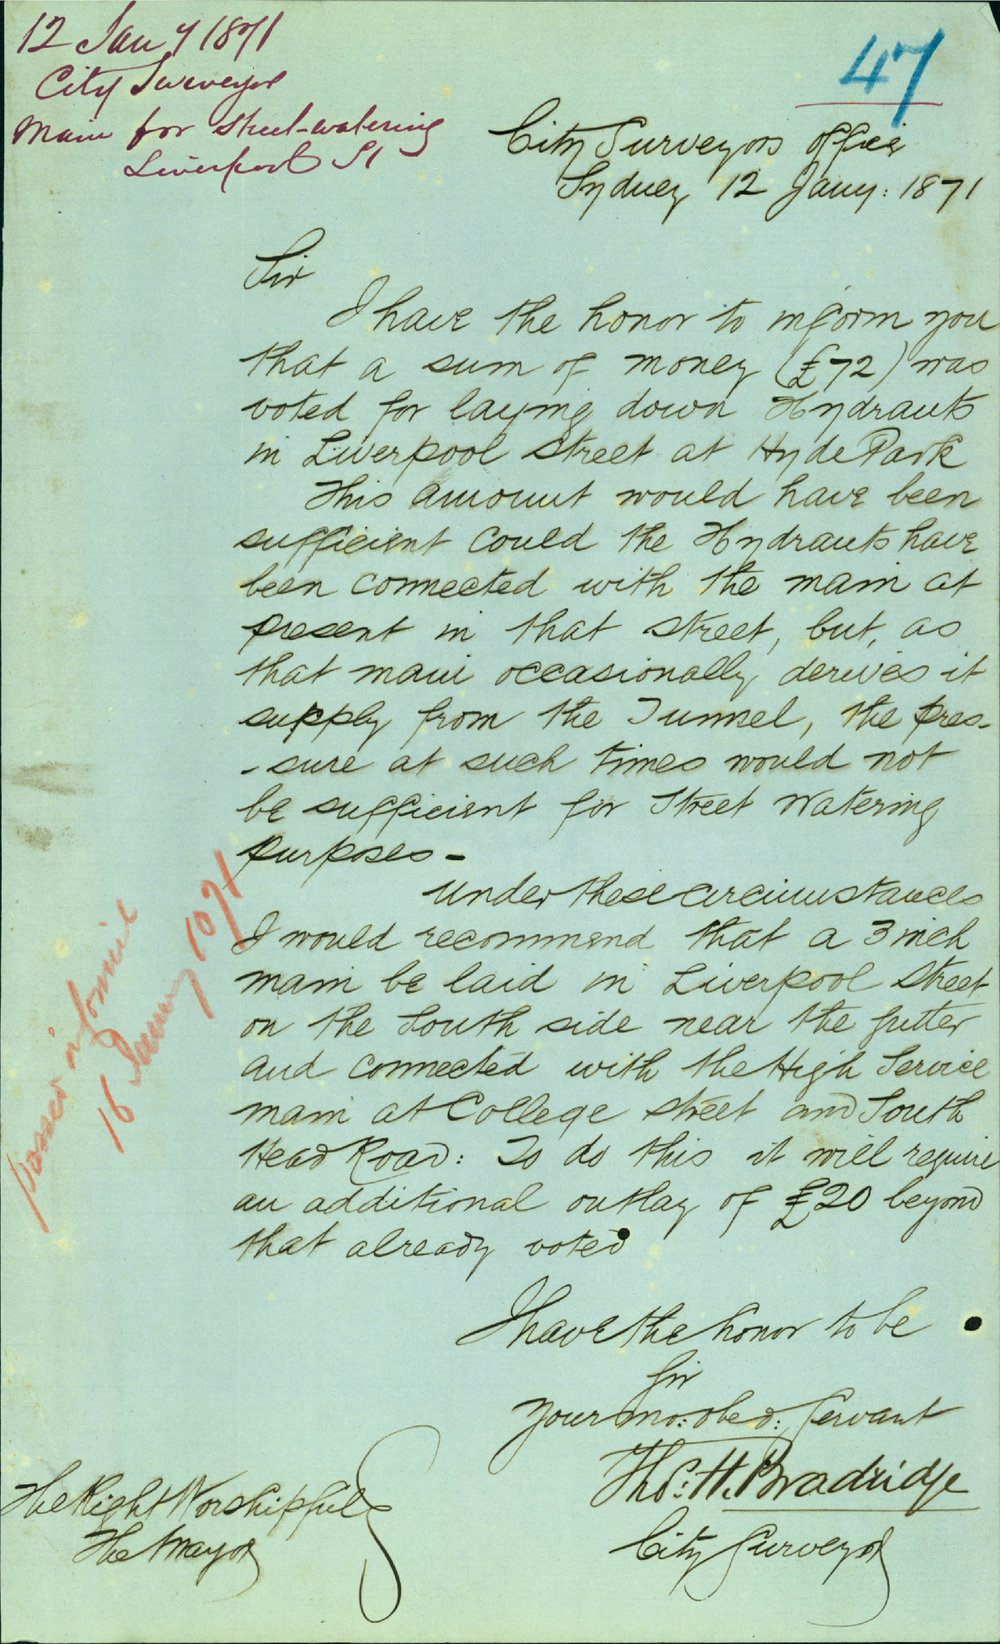 12 Jany 1871
City Surveyor
Main for Street-watering
Liverpool St
47
City Surveyors office
Sydney 12 Jany: 1871
Sir
I have the honor to inform you
that a sum of money (£72) was
voted for laying down Hydrants
in Liverpool Street at Hyde Park
This amount would have been
sufficient could the Hydrants have
been connected with the main at
present in that street, but, as
that main occasionally derives it
supply from the Tunnel, the pres-
-sure at such times would not
be sufficient for Street Watering
purposes -
Under these circumstances
I would recommend that a 3 inch
main be laid in Liverpool Street
on the South side near the gutter
and connected with the High Service
main at College Street and South
Head Road: To do this it will require
an additional outlay of £20 beyond
that already voted
I have the honor to be
Sir
Your mo: obed: Servant
Thos: H. Bradridge
City Surveyor
The Right Worshipful
The Mayor
passed in Council
16 January 1871